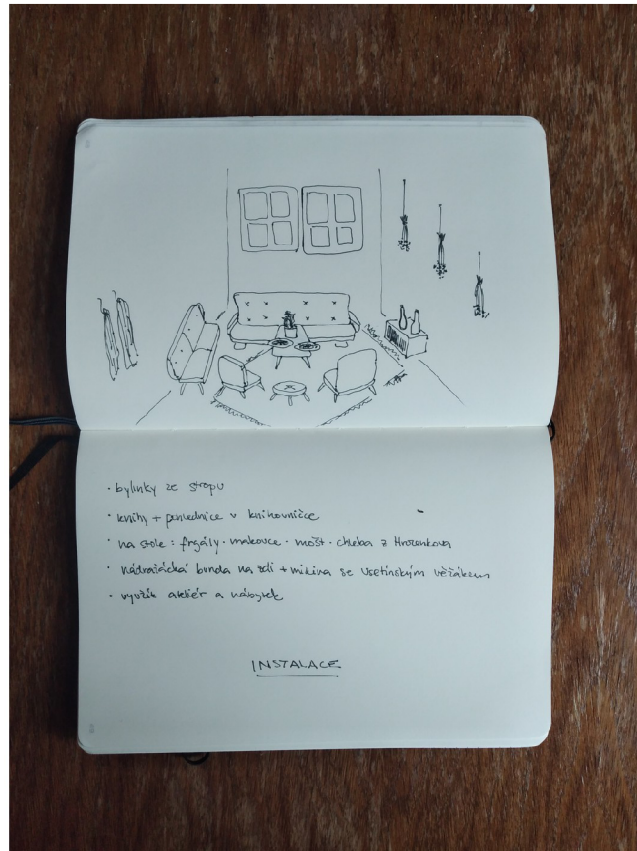 · bylinky ze stropu
· knihy + pohlednice v knihovničce
· na stole : frgály · makovce · mošt · chleba z Hrozenkova
· nádražácká bunda na zdi + mikina se Vsetínským věžákem
· využít ateliér a nábytek
INSTALACE